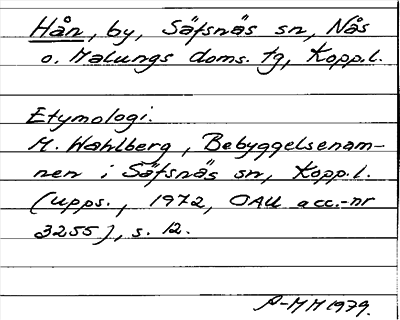 Hån, by, Säfsnäs sn, Nås
o. Malungs doms. tg, Kopp.l.
Etymologi.
M. Wahlberg, Bebyggelsenam-
nen i Säfsnäs sn, Kopp.l.
(Upps., 1972, OAU acc.-nr
3255), s. 12.
A-MM 1979.